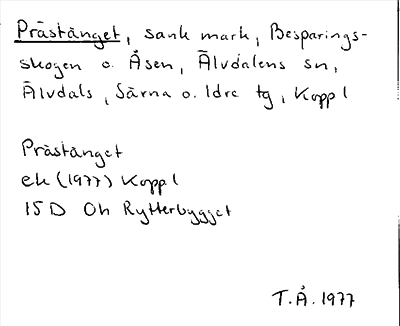 Prästänget, sank mark, Besparings-
skogen o. Åsen, Älvdalens sn,
Älvdals, Särna o. Idre tg, Koppl
Prästänget
ek (1977) Koppl
15D Oh Rytterbygget
T.Å. 1977